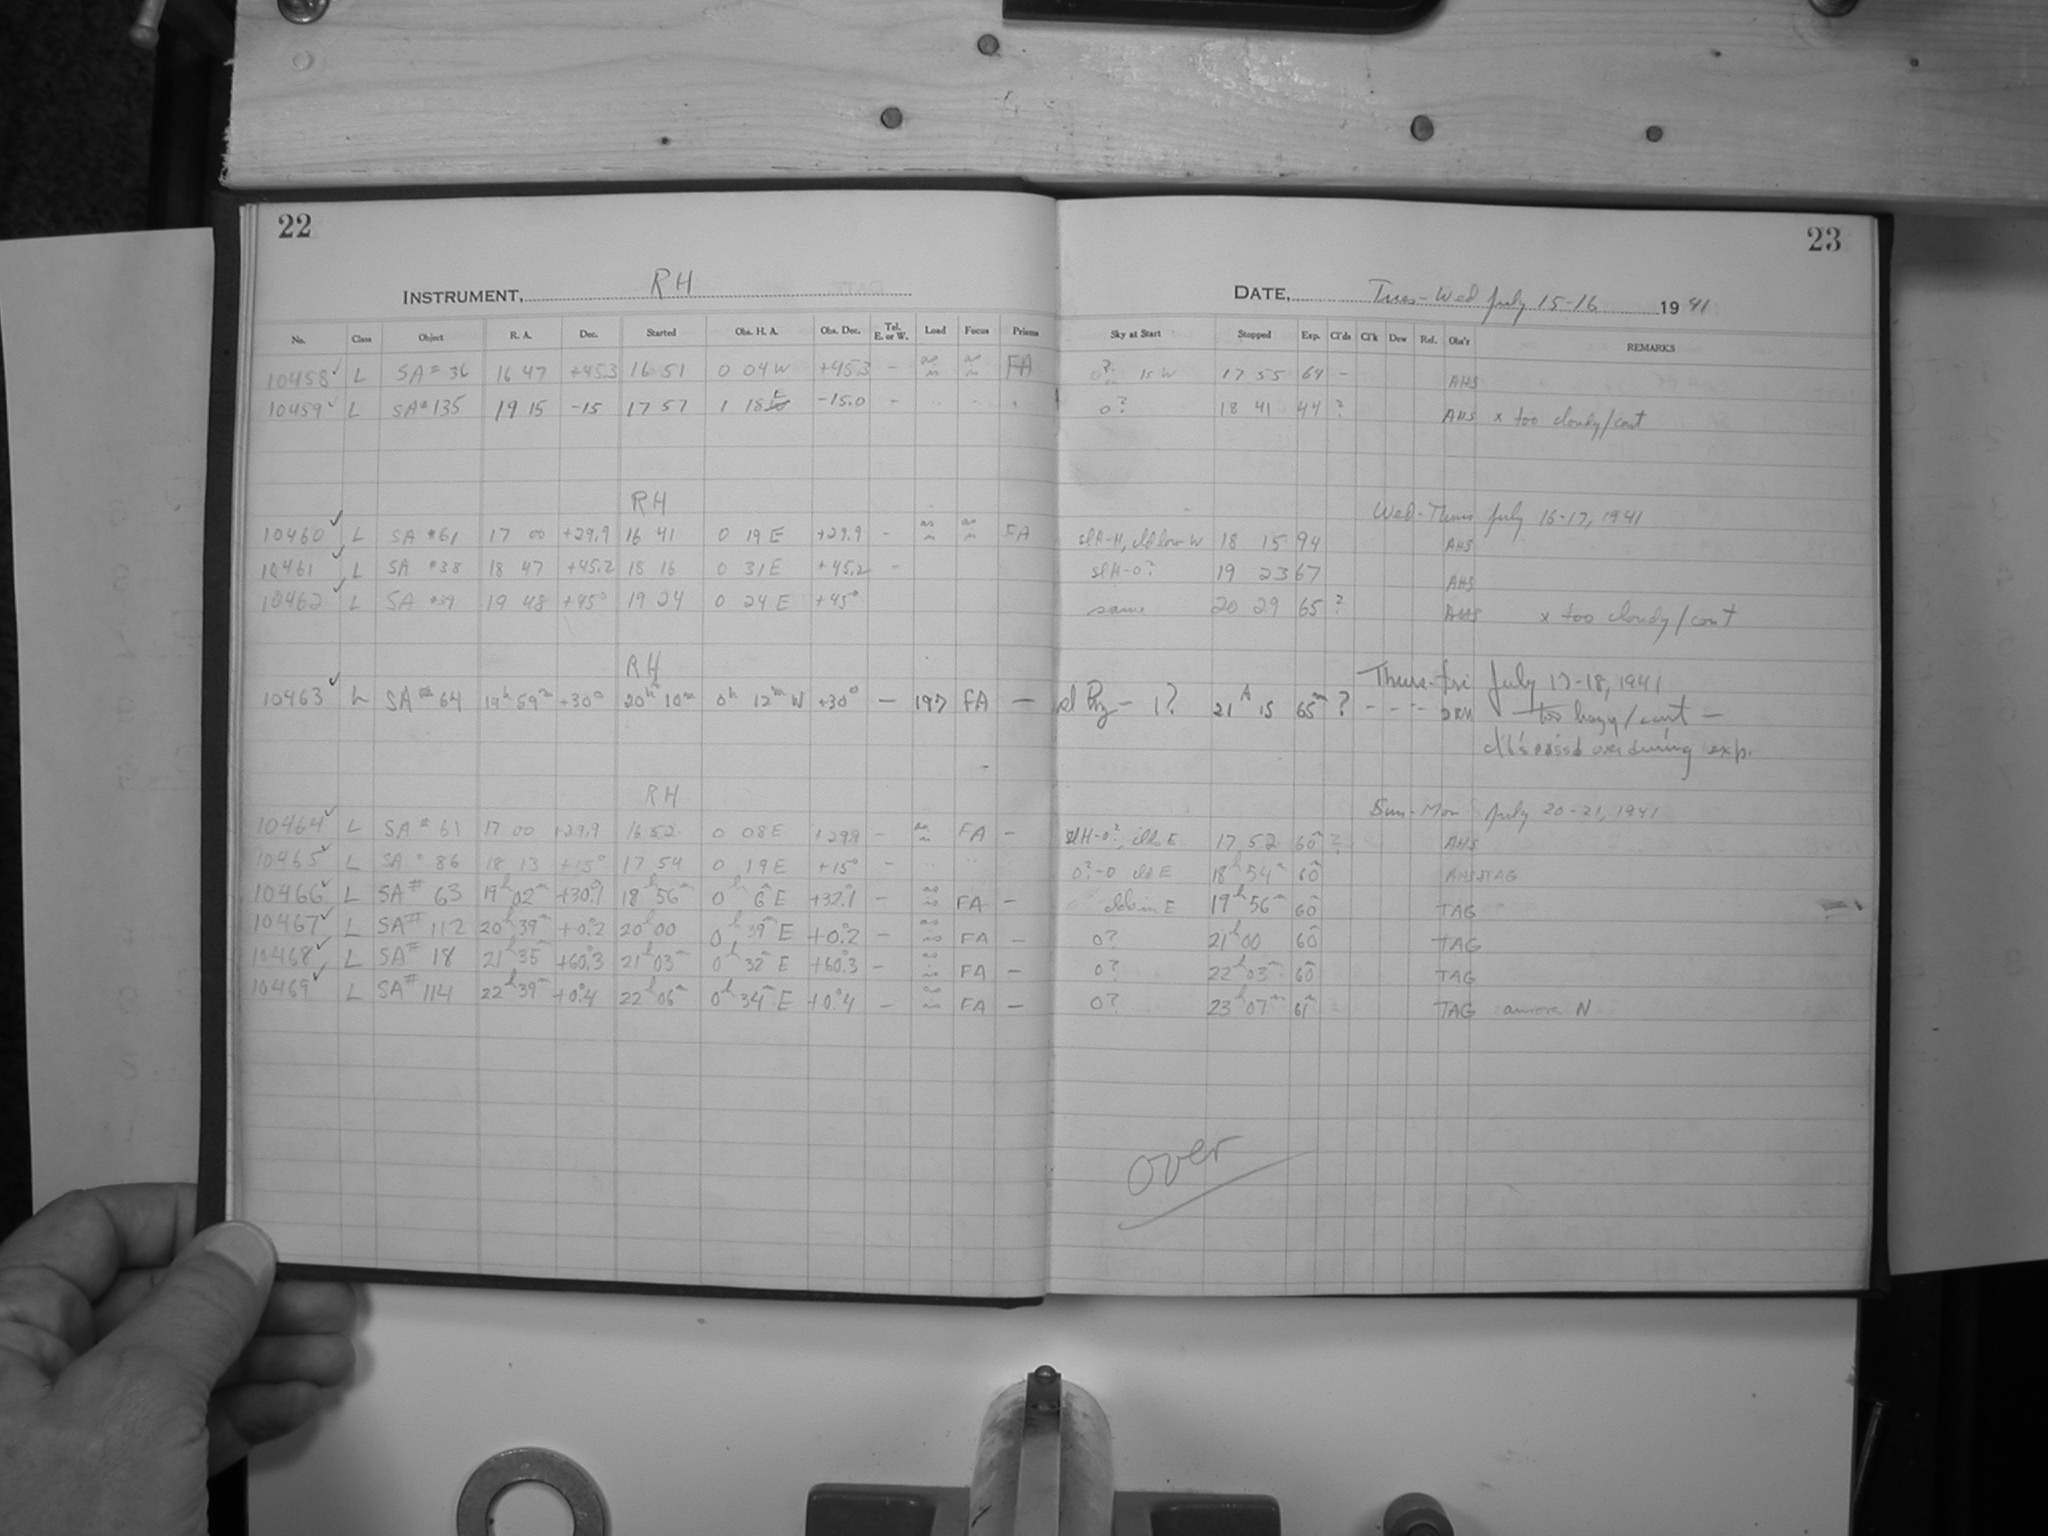 22
23
INSTRUMENT, RH
DATE, Tues-Wed July 15-16 1941
No. Class Object R. A. Dec. Started Obs. H. A. Obs. Dec. Tel. E. or W. Load Focus Prisms Sky at Start Stopped Exp. Cl'ds Cl'k Dew Ref. Obs'r REMARKS
10458 ✓ L SA # 36 16 47 +45.3 16 51 0 04 W +45.3 - as is as is FA 0? 15 W 17 55 64 - AHS
10459 ✓ L SA # 135 19 15 -15 17 57 1 18 E -15.0 - 0? 18 41 44 ? AHS x too cloudy/cont
RH Wed-Thurs July 16-17, 1941
10460 ✓ L SA #61 17 00 +29.9 16 41 0 19 E +29.9 - as is as is FA slH-H, cld low W 18 15 94 AHS
10461 ✓ L SA #38 18 47 +45.2 18 16 0 31 E +45.2 - slH-0? 19 23 67 AHS
10462 ✓ L SA #39 19 48 +45° 19 24 0 24 E +45° same 20 29 65 ? AHS x too cloudy/cont
RH Thurs-Fri July 17-18, 1941
10463 ✓ L SA # 64 19h 59m +30° 20h 10m 0h 12m W +30° — 197 FA — 1? 21h 15 65m ? - - - - too hazy/cont —
over during exp.
RH Sun-Mon July 20-21, 1941
10464 ✓ L SA # 61 17 00 +29.9 16 52 0 08 E +29.9 - as is FA - slH-0?, clds E 17 52 60m ? AHS
10465 ✓ L SA " 86 18 13 +15° 17 54 0 19 E +15° - 0?-0 cld E 18h 54m 60m AHS TAG
10466 ✓ L SA # 63 19h 02m +30.1 18h 56m 0h 6m E +32.1 - as is FA - clds in E 19h 56m 60m TAG
10467 ✓ L SA # 112 20h 39m +0.2 20h 00 0h 39m E +0.2 - as is FA - 0? 21h 00 60m TAG
10468 ✓ L SA # 18 21h 35m +60.3 21h 03m 0h 32m E +60.3 - as is FA - 0? 22h 03m 60m TAG
10469 ✓ L SA # 114 22h 39m +0.4 22h 06m 0h 34m E +0.4 - as is FA - 0? 23h 07m 61m TAG aurora N
over